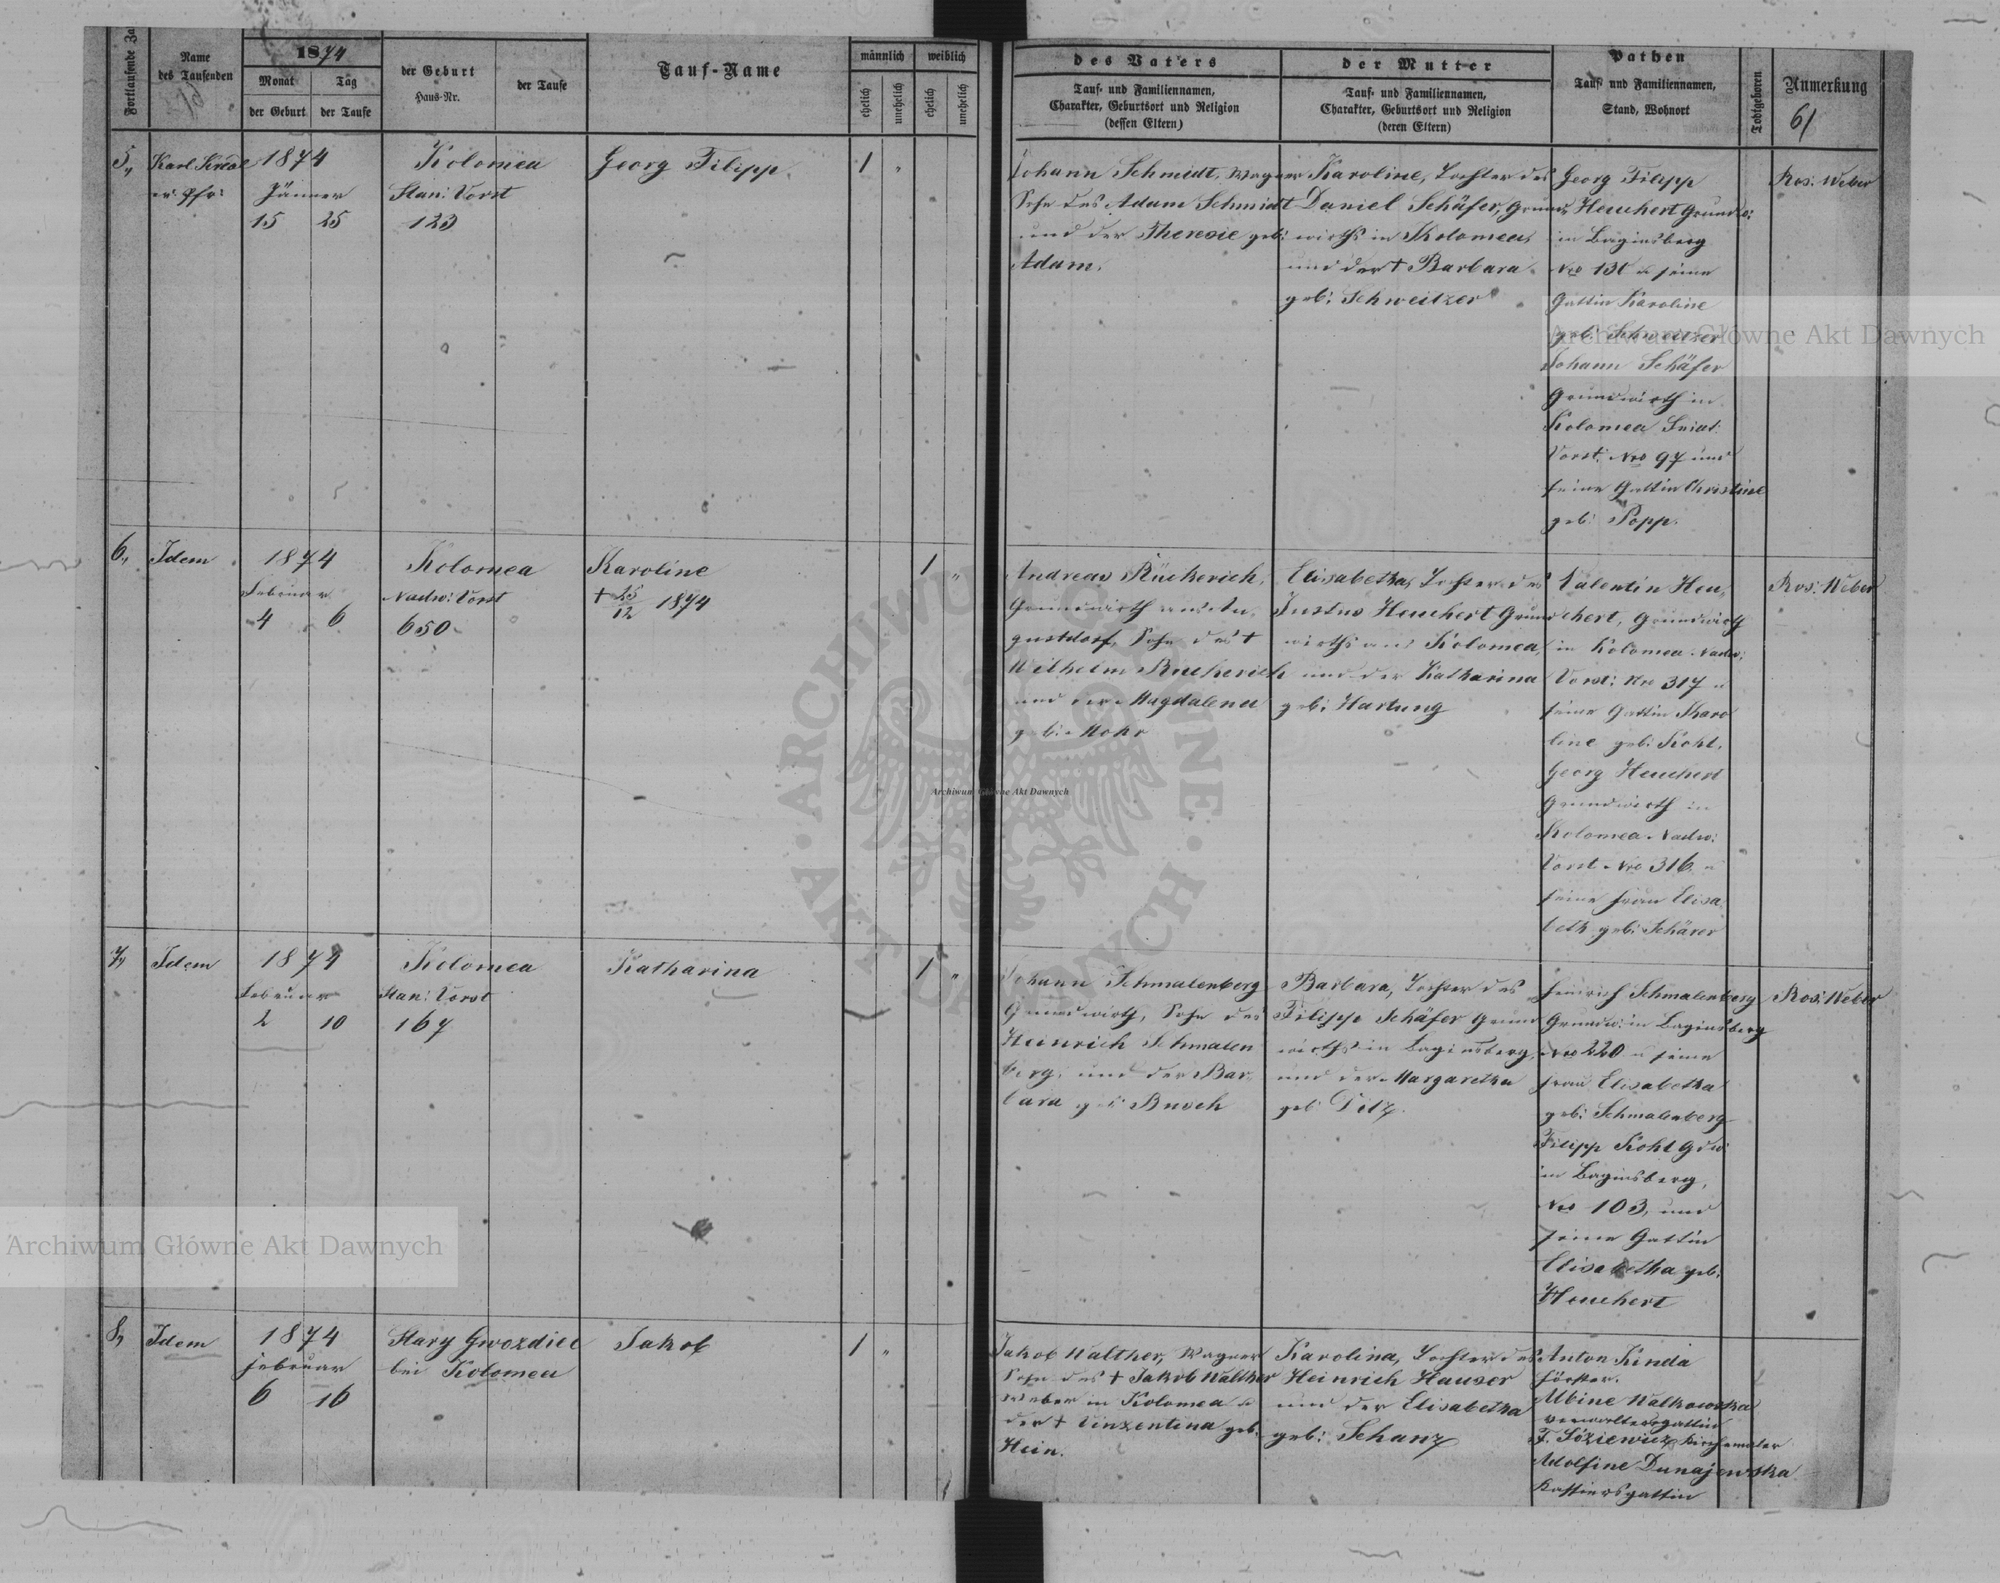 Fortlaufende Za
Name
des Taufenden
1874
Monat
Tag
der Geburt
der Taufe
der Geburt
Haus-Nr.
der Taufe
Tauf-Name
männlich
weiblich
ehelich
unehelich
ehelich
unehelich
des Vaters
Tauf- und Familiennamen,
Charakter, Geburtsort und Religion
(dessen Eltern)
der Mutter
Tauf- und Familiennamen,
Charakter, Geburtsort und Religion
(deren Eltern)
Pathen
Tauf- und Familiennamen,
Stand, Wohnort
Todtgeboren
Anmerkung
61
5,,
Karl
ev. Pfr:
1874
Jänner
15 25
Kolomea
Stan: Vorst
123
Georg Filipp.
1 "
Johann Schmidt, Wagner
Sohn des Adam Schmidt
und der Theresie geb:
Adam.
Karoline, Tochter des
Daniel Schäfer, Grund,
wirths in Kolomea,
und der + Barbara
geb: Schweitzer
Georg Filipp
Heuchert Grundw:
in Baginsberg
Nro 131 u seine
Gattin Karoline
geb: Schweitzer
Johann Schäfer
Grundwirth in
Kolomea Sniat:
Vorst: Nro 97 und
seine Gattin Christine
geb: Popp.
Ros: Weber
6,,
Idem
1874
Februar
4 6
Kolomea
Nadw: Vorst
650
Karoline
+ 25/12 1874
1 "
Andreas Rückerich,
Grundwirth aus Au,
gustdorf, Sohn des +
Wilhelm Rückerich
und der Magdalena
geb: Mohr
Elisabetha, Tochter des
Justus Heuchert Grund
wirths aus Kolomea,
und der Katharina
geb: Hartung
Valentin Heu,
chert, Grundwirth
in Kolomea Nadw:
Vorst: Nro 317 u
seine Gattin Karo
line geb: Kohl.
Georg Heuchert
Grundwirth in
Kolomea Nadw:
Vorst Nro 316 u
seine Frau Elisa,
beth geb: Schärer
Ros: Weber
7,,
Idem
1874
Februar
2 10
Kolomea
Stan: Vorst
167
Katharina
1 "
Johann Schmalenberg
Grundwirth, Sohn des
Heinrich Schmalen
berg, und der Bar,
bara geb: Busch
Barbara, Tochter des
Filipp Schäfer Grund
wirths in Baginsberg,
und der Margaretha
geb: Ditz.
Heinrich Schmalenberg
Grundw: in Baginsberg
Nro 220 u seine
Frau Elisabetha
geb: Schmalenberg
Filipp Kohl Gdw:
in Baginsberg,
Nro 103, und
seine Gattin
Elisabetha geb:
Heuchert
Ros: Weber
8,,
Idem
1874
Februar
6 16
Stary Gwozdiec
bei Kolomea
Jakob
1 "
Jakob Walther, Wagner
Sohn des + Jakob Walther
Weber in Kolomea u
der + Vinzentina geb:
Hein.
Karolina, Tochter des
Heinrich Hauser
und der Elisabetha
geb: Schanz
Anton Kinda
Förster.
Albine Walkowska
Verwaltersgattin
Kirchenmaler
Adolfine Dunajewska
Kassiersgattin
Archiwum Główne Akt Dawnych
Archiwum Główne Akt Dawnych
Archiwum Główne Akt Dawnych
ARCHIWUM GŁÓWNE · AKT DAWNYCH ·